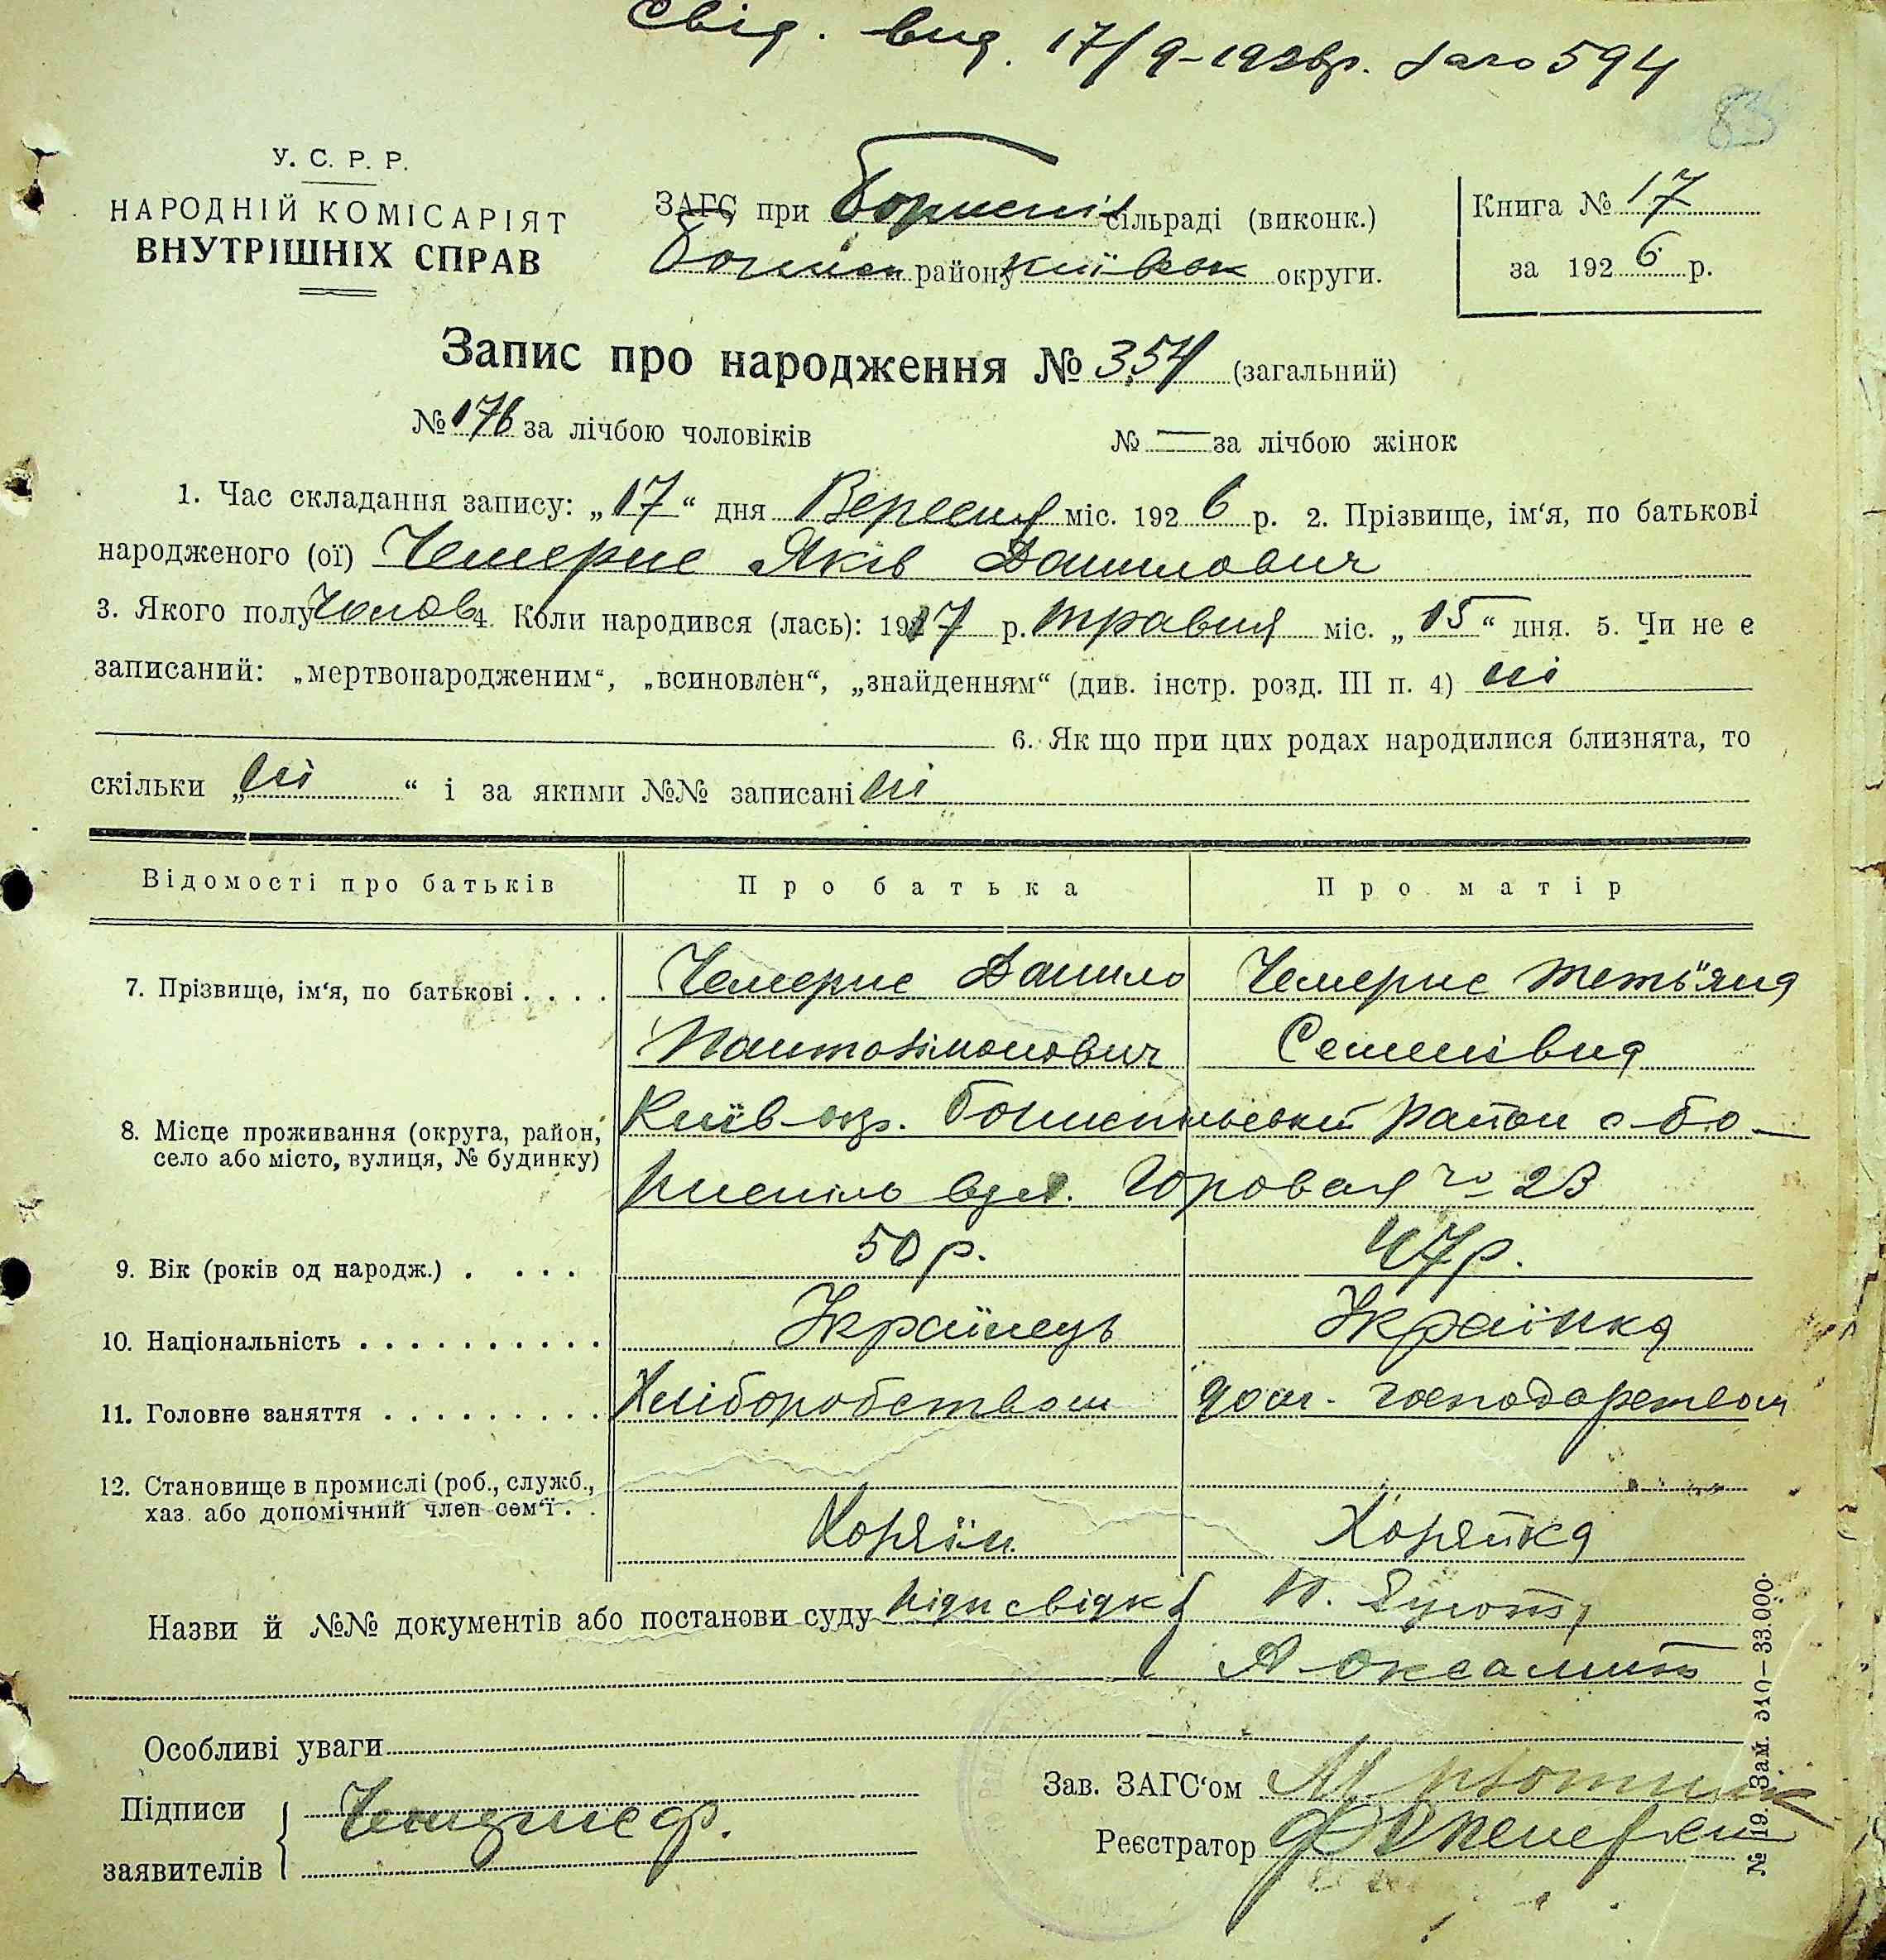 Свід. вид. 17/9-1926р. за № 594
83
У. С. Р. Р.
НАРОДНІЙ КОМІСАРІЯТ
ВНУТРІШНІХ СПРАВ
ЗАГС при Бориспіл сільраді (виконк.)
Борисп району Київськ округи.
Книга № 17
за 1926 р.
Запис про народження № 354 (загальний)
№ 176 за лічбою чоловіків № — за лічбою жінок
1. Час складання запису: „17“ дня Вересня міс. 1926 р. 2. Прізвище, ім‘я, по батькові
народженого (ої) Чемерис Яків Данилович
3. Якого полу Чолов 4. Коли народився (лась): 1917 р. травня міс. „15“ дня. 5. Чи не є
записаний: „мертвонародженим“, „всиновлен“, „знайденням“ (див. інстр. розд. III п. 4) ні
6. Як що при цих родах народилися близнята, то
скільки „ні“ і за якими №№ записані ні
Відомості про батьків Про батька Про матір
7. Прізвище, ім‘я, по батькові . . . . Чемерис Данило Чемерис Теть"яна
Пантелімонович Семенівна
8. Місце проживання (округа, район, Київ окр. Бориспільський район с Бо-
село або місто, вулиця, № будинку) риспіль вул. Горовая № 23
9. Вік (років од народж.) . . . . 50 р. 47 р.
10. Національність . . . . . . . . . . Українець Українка
11. Головне заняття . . . . . . . . . Хліборобством дом. господарством
12. Становище в промислі (роб., служб.,
хаз. або допомічний член сем‘ї . . Хозяїн Хозяйка
Назви й №№ документів або постанови суду підп свідк
А Оксамит
Особливі уваги
Підписи
заявителів
Чемерис
Зав. ЗАГС‘ом
Реєстратор
№ 19. Зам. 310—33.000.